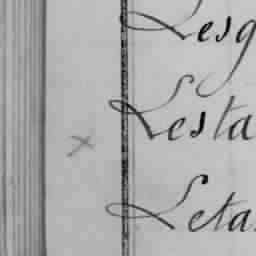 Lesg
Lesta
× Leta